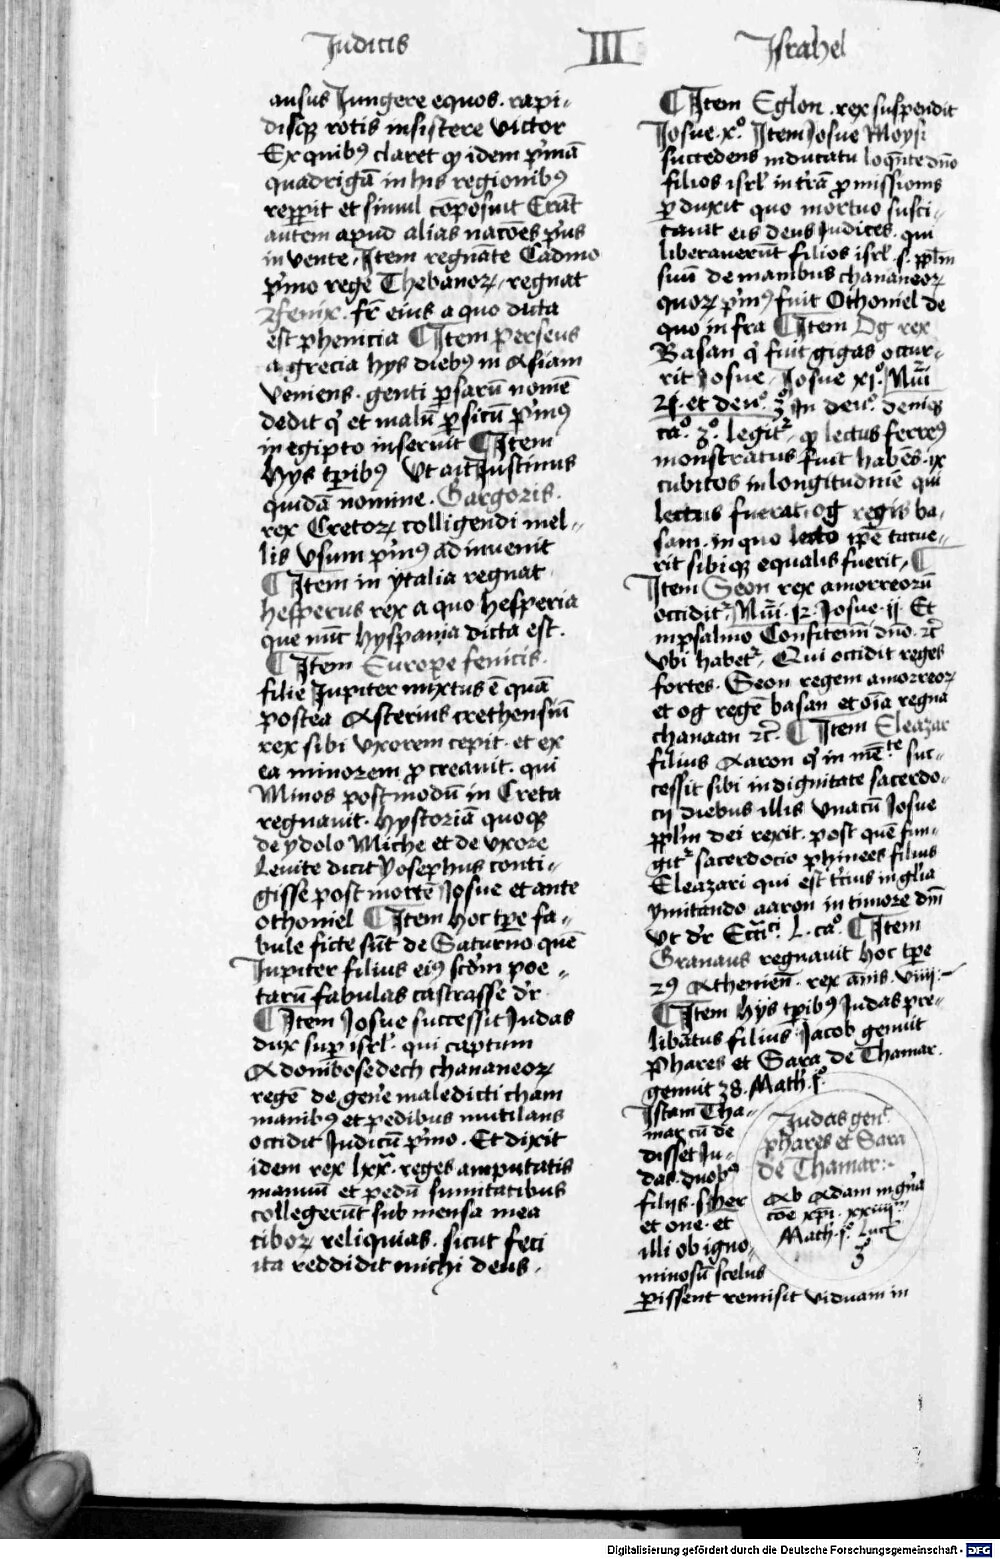 Iudicis III Israhel
ausus Iungere equos. rapi-
disq rotis insistere victor
Ex quibꝰ claret ꝙ idem p'mā
quadrigā in his regionibꝰ
rep̱pit et simul cōposuit Erāt
autem apud alias nacōes p'us
invente. Item regnāte Cadmo
p'mo rege Thebanoꝝ. regnat
fenix. fr̄ eius a quo dicta
est phenicia ¶ Item Perseus
a grecia hys diebꝰ in Asiam
veniens. genti ꝑsarū nomē
dedit qͥ et malū ꝑsicū p'mꝰ
in egipto inseruit ¶ Item
hys tꝑibꝰ vt ait Iustinus
quidā nomine. Gargoris.
rex Cretoꝝ colligendi mel-
lis vsum p'mꝰ ad invenit
¶ Item in ytalia regnat
hesperus rex a quo hesperia
que nūc hyspania dicta est.
¶ Item Europe fenicis.
filie Iupiter mixtus ē quā
postea Asterius crethensiū
rex sibi vxorem cepit. et ex
ea minorem ꝓcreavit. qui
Minos postmodū in Creta
regnavit. Hystoriā quoqꝫ
de ydolo Miche et de vxore
Levite dicit Yosephus conti-
gisse post mortē Iosue et ante
Othoniel ¶ Item hoc tꝑe fa-
bule ficte sūt de Saturno quē
Iupiter filius eiꝰ scd'm poe-
tarū fabulas castrasse d'r
¶ Item Iosue successit Iudas
dux suꝑ isrl'. qui captum
Adonibosedech chananeoꝝ
regē de gen'e maledicti cham
manibꝰ et pedibus mutilans
occidit Iudicū p'mo. Et dixit
idem rex lxx. reges amputatis
manuū et pedū sumitatibus
collegerūt sub mensa mea
ciboꝝ reliquias. sicut feci
ita reddidit michi deus.
¶ Item Eglon. rex suspendit
Iosue. x°. Item Iosue Moysi
succedens in ducatu loqn̄te dn̄o
filios isrl' in t'rā ꝓmissionis
ꝑduxit quo mortuo susci-
tavit eis deus Iudices. qui
liberaverūt filios isrl' .s. ppl'm
suū de manibus chananeoꝝ
quoꝝ p'mꝰ fuit Othoniel de
quo infra ¶ Item Og rex
Basan qͥ fuit gigas occur-
rit Iosue. Iosue xj°. Nūi
21. et deu°. 3° In deu°. deniqꝫ
ca°. 3°. legit'. ꝙ lectus ferreꝰ
monstratus fuit habēs. ix
cubitos in longitudinē qui
lectus fuerat og regis ba-
san. in quo lecto ip̄e tacue-
rit sibiqꝫ equalis fuerit. ¶
Item Seon rex amorreorū
occidit'. Nūi. 12. Iosue. ij. Et
in psalmo Confitemi dn̄o. ꝛc̄
vbi habet'. Qui occidit reges
fortes. Seon regem amorreoꝝ
et og regē basan et oīa regna
chanaan ꝛc̄. ¶ Item Eleazar
filius Aaron qͥ in mēte suc-
cessit sibi in dignitate sacerdo-
cij diebus illis vnacū Iosue
ppl'm dei rexit. post quē fun-
git' sacerdocio phinees filius
Eleazari qui est t'cius in gl'ia
ymitando aaron in timore dn̄i
vt d'r Ecc̄i. L. ca°. ¶ Item
Granaus regnavit hoc tꝑe
2ꝰ Athenien̄. rex ān̄is. viiij.
¶ Item hijs tꝑibꝰ Iudas pre-
libatus filius Iacob genuit
Phares et Sara de Thamar.
genuit 38. Math. j°.
Istam Tha-
mar cū de
disset Iu-
das. duobꝰ
filijs. s. her
et one. et
illi ob igno-
minosū scelus
ꝑissent remisit viduam in
Iudas gen't
phares et Sara
de Thamar:
Ab Adam in gn̄a
cōe xpi. xxiiij
Math. j°. Luc
3°
Digitalisierung gefördert durch die Deutsche Forschungsgemeinschaft - DFG